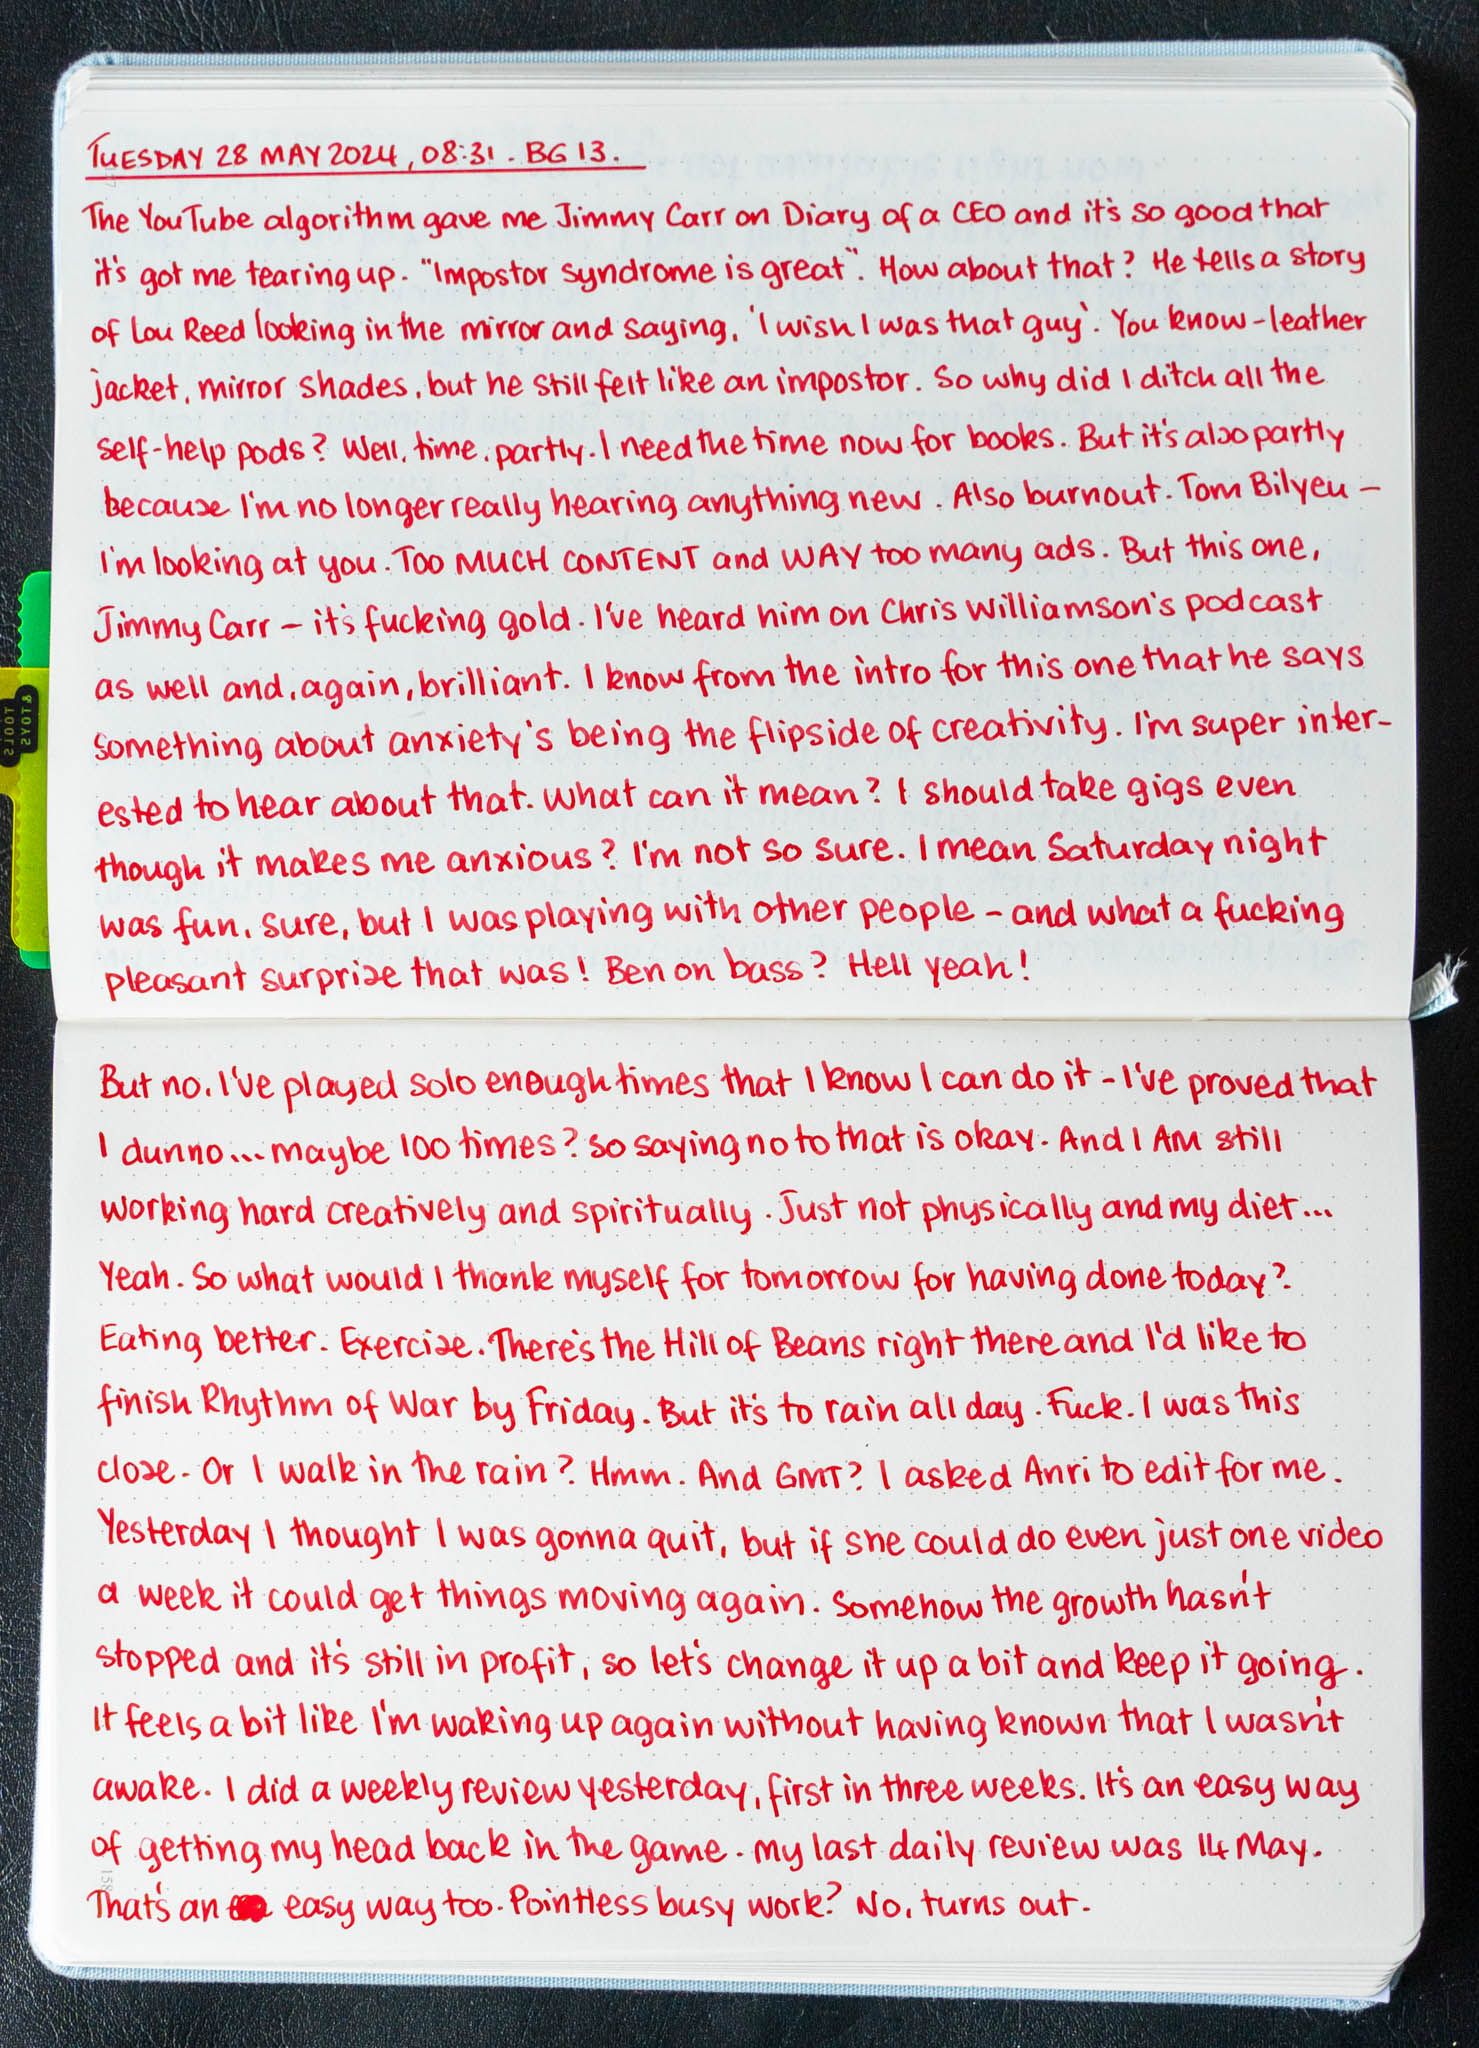 TUESDAY 28 MAY 2024, 08:31. BG 13.
The YouTube algorithm gave me Jimmy Carr on Diary of a CEO and it's so good that
it's got me tearing up. "Impostor syndrome is great". How about that? He tells a story
of Lou Reed looking in the mirror and saying, 'I wish I was that guy'. You know – leather
jacket, mirror shades, but he still felt like an impostor. So why did I ditch all the
self-help pods? Well, time, partly. I need the time now for books. But it's also partly
because I'm no longer really hearing anything new. Also burnout. Tom Bilyeu –
I'm looking at you. TOO MUCH CONTENT and WAY too many ads. But this one,
Jimmy Carr – it's fucking gold. I've heard him on Chris Williamson's podcast
as well and, again, brilliant. I know from the intro for this one that he says
something about anxiety's being the flipside of creativity. I'm super inter-
ested to hear about that. What can it mean? I should take gigs even
though it makes me anxious? I'm not so sure. I mean Saturday night
was fun, sure, but I was playing with other people – and what a fucking
pleasant surprise that was! Ben on bass? Hell yeah!
But no. I've played solo enough times that I know I can do it – I've proved that
I dunno... maybe 100 times? So saying no to that is okay. And I AM still
working hard creatively and spiritually. Just not physically and my diet...
Yeah. So what would I thank myself for tomorrow for having done today?
Eating better. Exercise. There's the Hill of Beans right there and I'd like to
finish Rhythm of War by Friday. But it's to rain all day. Fuck. I was this
close. Or I walk in the rain? Hmm. And GMT? I asked Anri to edit for me.
Yesterday I thought I was gonna quit, but if she could do even just one video
a week it could get things moving again. Somehow the growth hasn't
stopped and it's still in profit, so let's change it up a bit and keep it going.
It feels a bit like I'm waking up again without having known that I wasn't
awake. I did a weekly review yesterday, first in three weeks. It's an easy way
of getting my head back in the game. My last daily review was 14 May.
That's an easy way too. Pointless busy work? No, turns out.